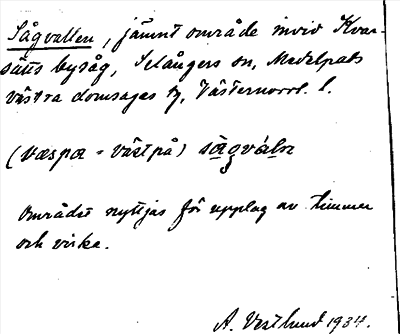 Sågvallen, jämnt område invid Kvar-
sätts bysåg, Selångers sn, Medelpads
västra domsagas tg, Västernorrl. l.
(væspœ = västpå) sàgválṇ
Området nyttjas för upplag av timmer
och virke.
A. Vestlund 1934.